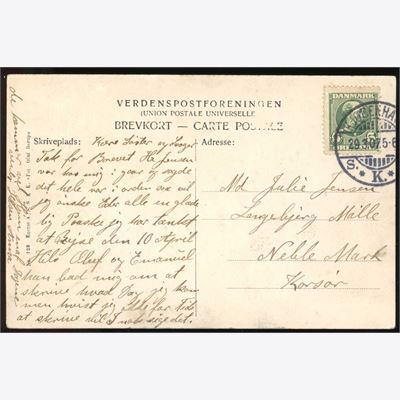 VERDENSPOSTFORENINGEN
(UNION POSTALE UNIVERSELLE)
BREVKORT — CARTE POSTALE
Skriveplads:
Adresse:
DANMARK
29.3.07.5-6
S. * K. *
Kære Søster og Svoger
Tak for Brevet H. Jensen
var hos mig i gaar og sagde
det hele var i orden saa vil
jeg ønske Eder alle en glade
lig Paaske jeg har tænkt
at Rejse den 10 April
Hils Oluf og Emanuel
han bad mig om at
skrive hvad Dag jeg kom
men hvist jeg ikke før Tid
at skrive vil I nok sige det.
Md Julie Jensen
Langebjerg Mølle
Neble Mark
Korsør